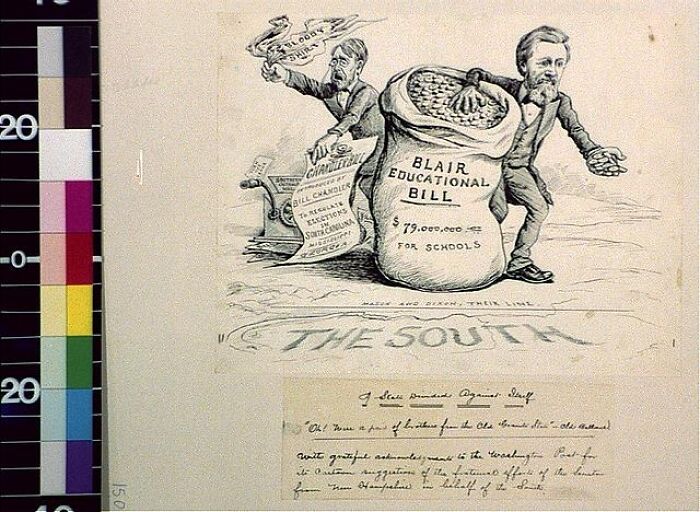 BLOODY
SHIRT
CHANDLER BILL
INTRODUCED BY
BILL CHANDLER
TO REGULATE
ELECTIONS
IN
SOUTH CAROLINA
MISSISSIPPI
SOUTHERN
OUTRAGE
BLAIR
EDUCATIONAL
BILL
$79.000.000
FOR SCHOOLS
MASON AND DIXON, THEIR LINE.
THE SOUTH
A State Divided Against Itself
"Oh! Were a pair of brothers from the Old Granite State" - Old Ballad
With grateful acknowledgments to the Washington Post for
its cartoon suggestion of the fraternal efforts of the Senators
from New Hampshire in behalf of the South
20
0
20
10
150